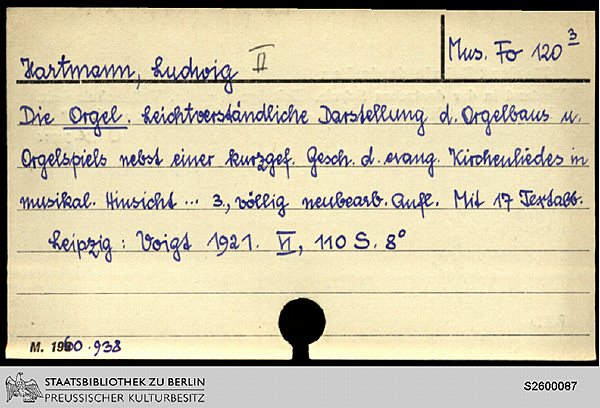 Mus. Fo 120³
Hartmann, Ludwig II
Die Orgel. Leichtverständliche Darstellung d. Orgelbaus u.
Orgelspiels nebst einer kurzgef. Gesch. d. evang. Kirchenliedes in
musikal. Hinsicht ... 3, völlig neubearb. Aufl. Mit 17 Textabb.
Leipzig: Voigt 1921. VI, 110 S. 8°
M. 1960.938
STAATSBIBLIOTHEK ZU BERLIN
PREUSSISCHER KULTURBESITZ
S2600087